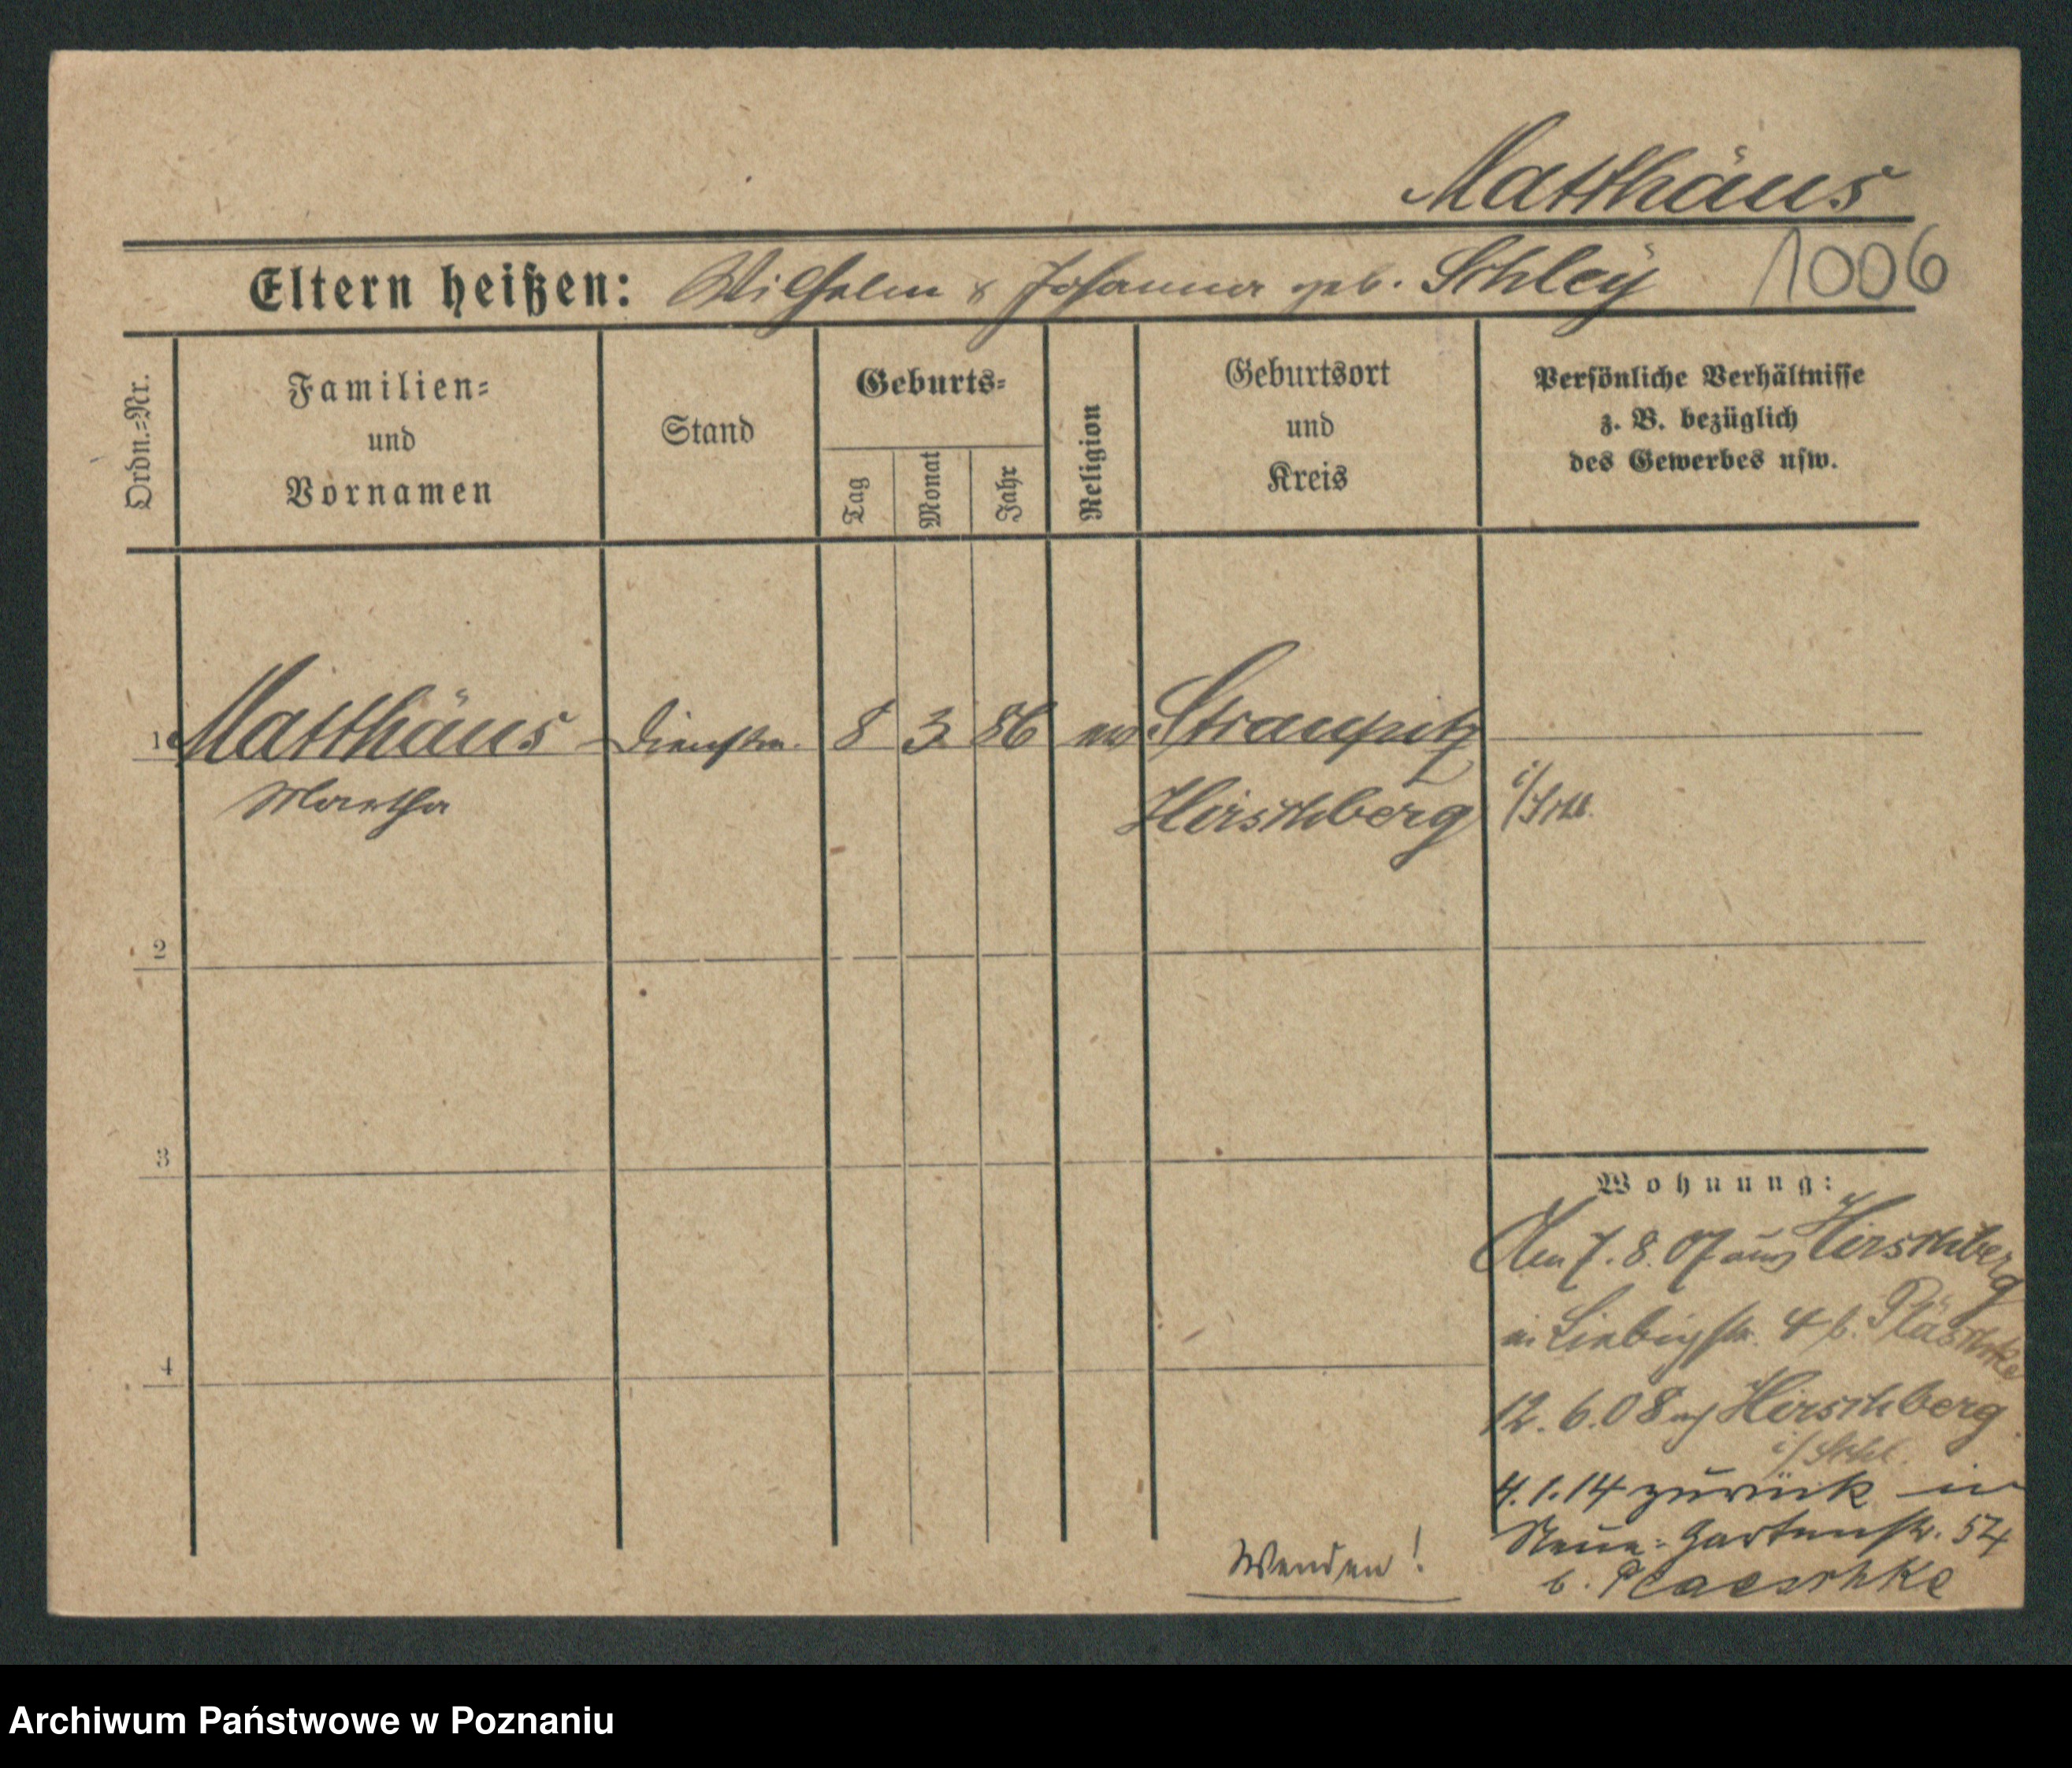 Matthäus
Eltern heißen: Wilhelm & Johanna geb. Schley 1006
Ordn.=Nr.
Familien=
und
Vornamen
Stand
Geburts=
Tag
Monat
Jahr
Religion
Geburtsort
und
Kreis
Persönliche Verhältnisse
z. B. bezüglich
des Gewerbes usw.
1 Matthäus Dienstm. 8 3 86 ev Straupitz
Martha Hirschberg i/Schl.
2
3
4
Wohnung:
Am 7. 8. 07 aus Hirschberg
in Liebigstr. 4 b. Pläschke
12. 6. 08 n/ Hirschberg
i/Schl.
4. 1. 14 zurück in
Neue=Gartenstr. 54
b. Plaeschke
Wenden!
Archiwum Państwowe w Poznaniu